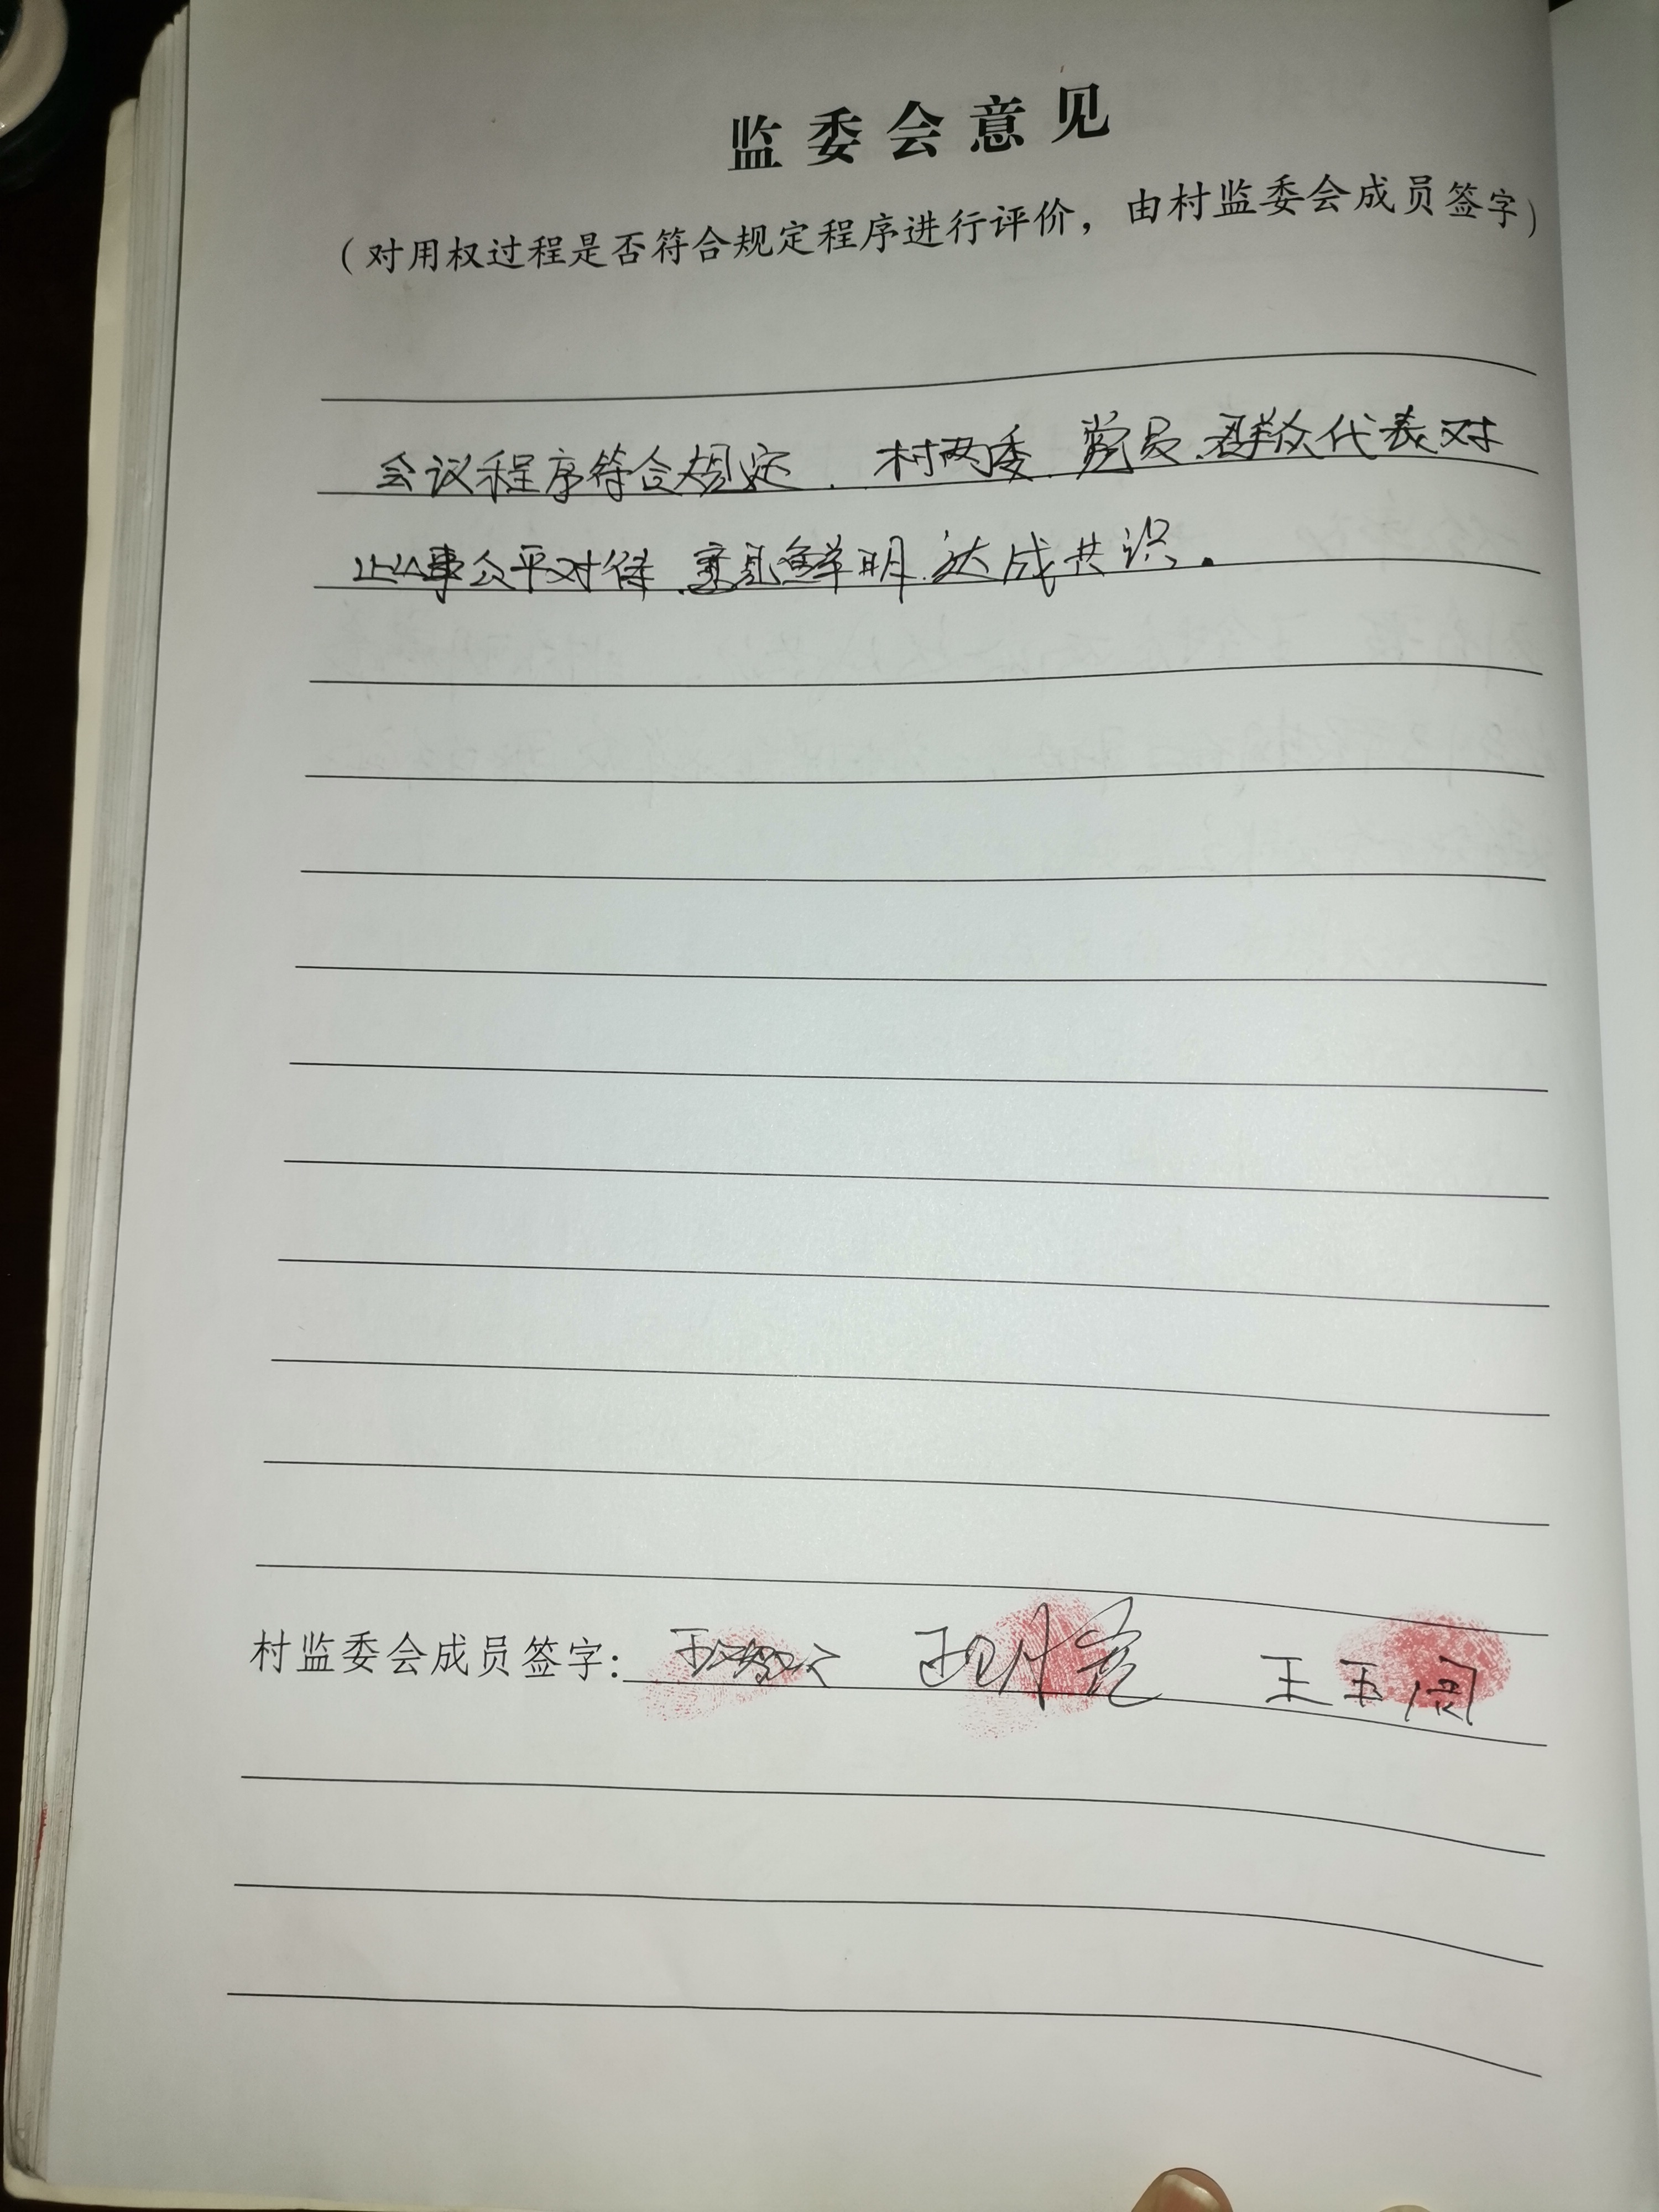 监委会意见
（对用权过程是否符合规定程序进行评价，由村监委会成员签字）
会议程序符合规定．村两委．党员．群众代表对
事公平对待．意见鲜明．达成共识。
村监委会成员签字： 王玉阁